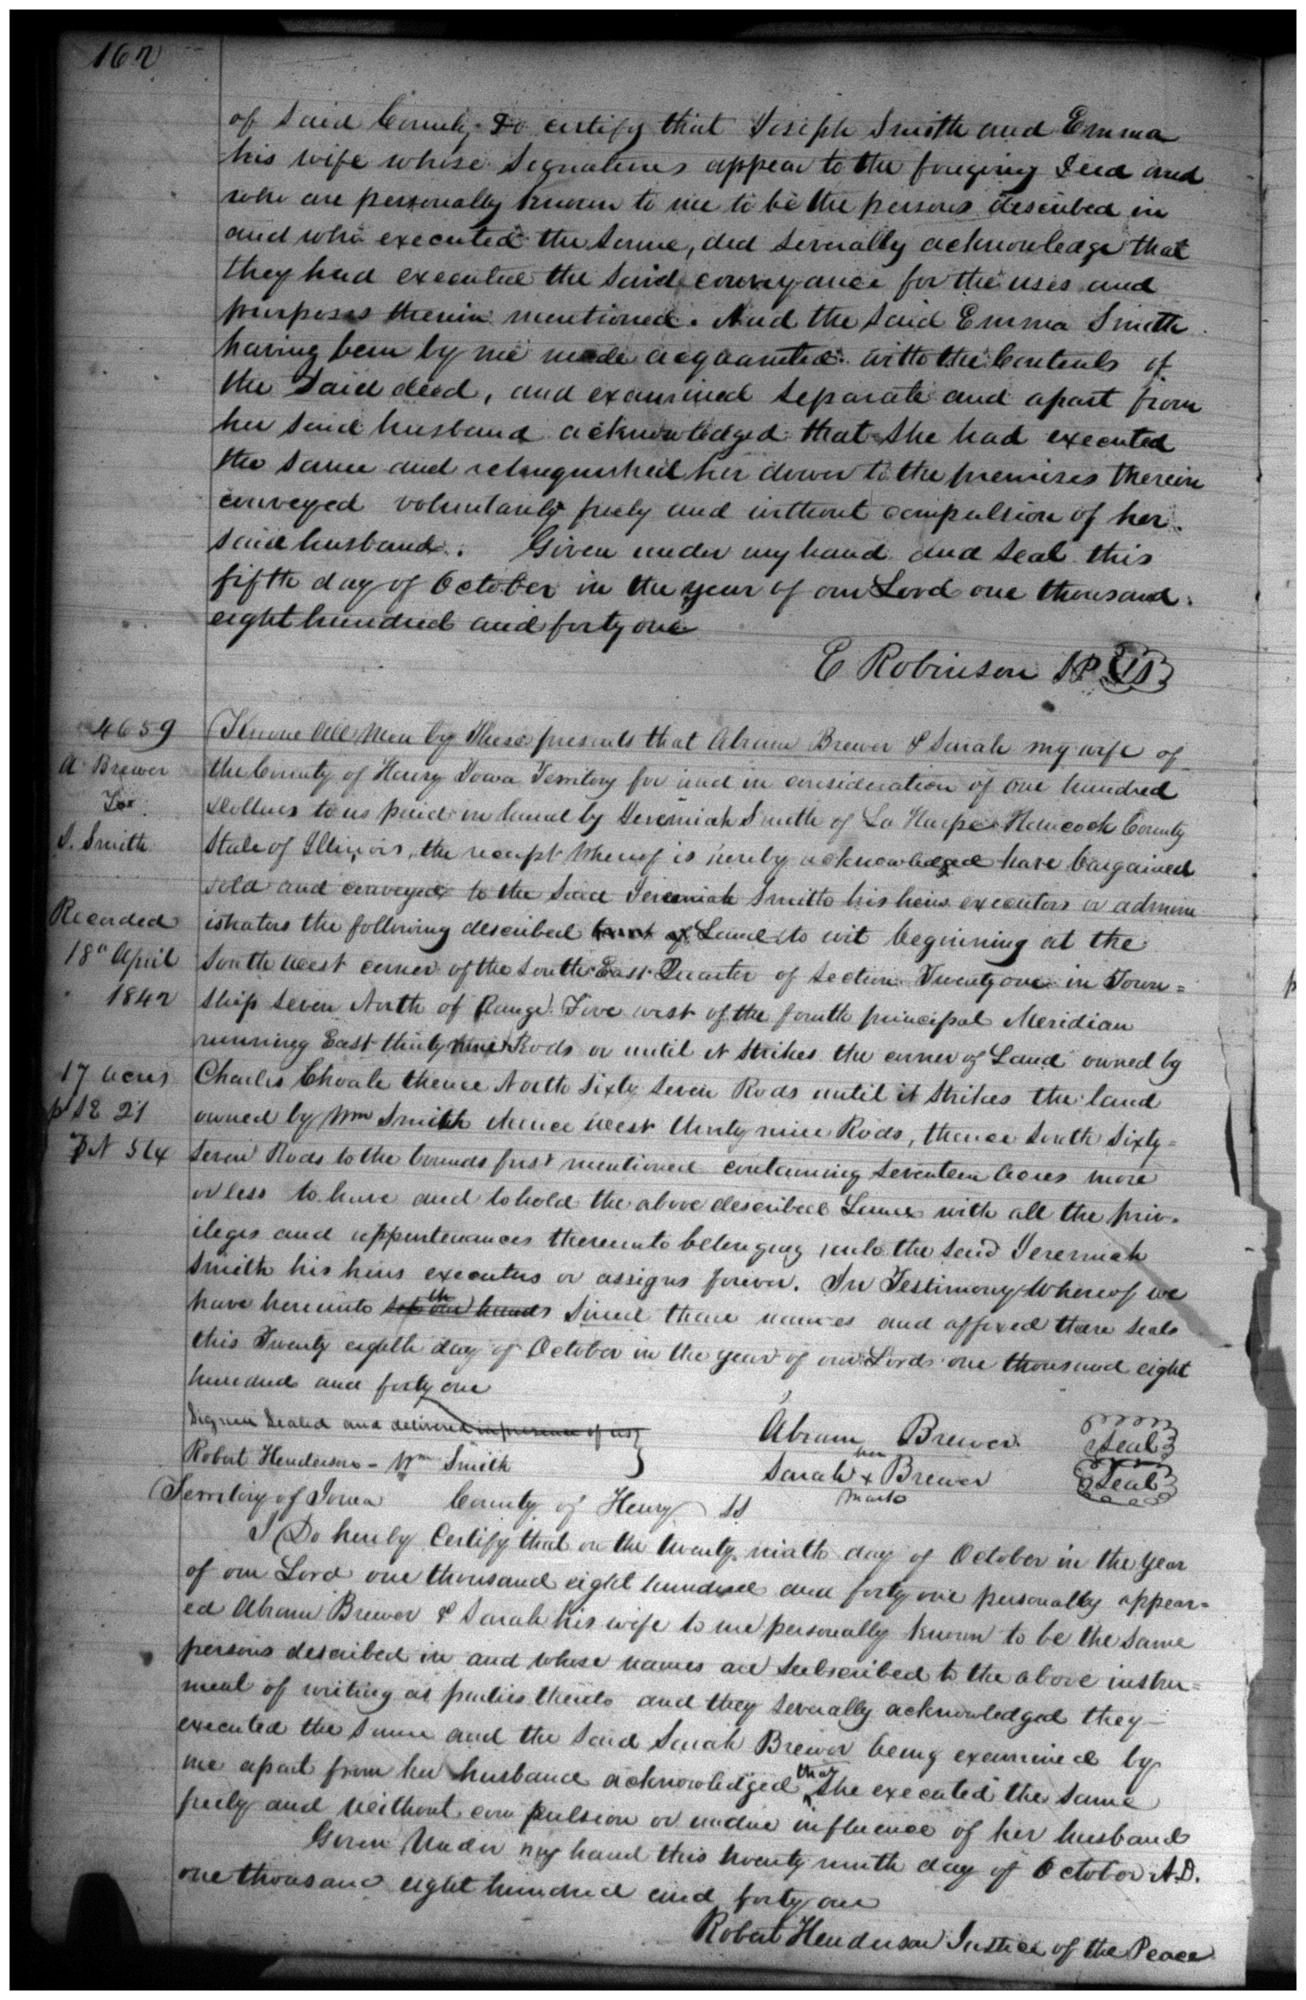 162
of said County, Do certify that Joseph Smith and Emma
his wife whose Signatures appear to the forgoing Deed and
who are personally known to me to be the persons described in
and who executed the same, did severally acknowledge that
they had executed the said conveyance for the uses and
purposes therein mentioned. And the said Emma Smith
having been by me made acquainted with the Contents of
the said deed, and examined separate and apart from
her said husband acknowledged that she had executed
the same and relinquished her dower to the premises therein
conveyed voluntarily freely and without compulsion of her
said husband. Given under my hand and seal this
fifth day of October in the year of our Lord one thousand
eight hundred and forty one
E Robinson J P LS
4659
A Brewer
To
J. Smith
Recorded
18" April
1842
17 acres
p SE 21
7 N 5 W
Know All Men by These presents that Abram Brewer & Sarah my wife of
the County of Henry Iowa Territory for and in consideration of one hundred
Dollars to us paid in hand by Jeremiah Smith of La Harpe Hancock County
State of Illinois, the receipt whereof is hereby acknowledged have bargained
sold and conveyed to the said Jeremiah Smith his heirs executors or admin
istrators the following described tract of Land to wit beginning at the
South West corner of the South East Quarter of section Twenty one in Town=
ship seven North of Range Five west of the fourth principal Meridian
running East thirty nine Rods or until it strikes the corner of Land owned by
Charles Choate thence North Sixty Seven Rods until it strikes the land
owned by Wm Smith thence West thirty nine Rods, thence South Sixty=
Seven Rods to the bounds first mentioned containing seventeen acres more
or less to have and to hold the above described Land with all the priv=
ileges and appurtenances thereunto belonging unto the said Jeremiah
Smith his heirs executors or assigns forever. In Testimony Whereof we
have hereunto set our hands th Sined thare names and affixed thare seals
this Twenty eighth day of October in the year of our Lord one thousand eight
hundred and forty one
Signed Sealed and delivered in presence of us
Robert Henderson - Wm Smith
Abram Brewer Seal
Sarah her x mark Brewer Seal
Territory of Iowa County of Henry ss
I Do hereby Certify that on the twenty ninth day of October in the year
of our Lord one thousand eight hundred and forty one personally appear=
ed Abram Brewer & Sarah his wife to me personally known to be the same
persons described in and whose names are subscribed to the above instru=
ment of writing as parties thereto and they severally acknowledged they
executed the same and the said Sarah Brewer being examined by
me apart from her husband acknowledged that she executed the same
freely and without compulsion or undue influence of her husband
Given Under my hand this twenty ninth day of October A.D.
one thousand eight hundred and forty one
Robert Henderson Justice of the Peace